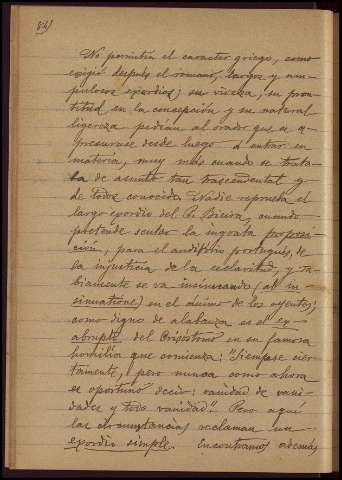 82)
No permitía el caracter griego, como
exigió después el romano, largos y am-
pulosos exordios; su viveza, su pron-
titud en la concepción y su natural
ligereza pedían al orador que se a-
presurase desde luego á entrar en
materia, muy mas cuando se trata-
ba de asunto tan trascendental y
de todos conocido. Nadie reprueba el
largo exordio del P. Vieira, cuando
pretende sentar la ingrata proposi-
ción, para el auditorio portugués, de
la injusticia de la esclavitud, y sa-
biamente se va insinuando (ab in-
sinuatione) en el ánimo de los oyentes;
como digno de alabanza es el ex-
abrupto del Crisóstomo en su famosa
homilía que comienza: "Siempre cier-
tamente, pero nunca como ahora
es oportuno decir: vanidad de vani-
dades y todo vanidad". Pero aquí
las circunstancias reclaman un
exordio simple. Encontramos además